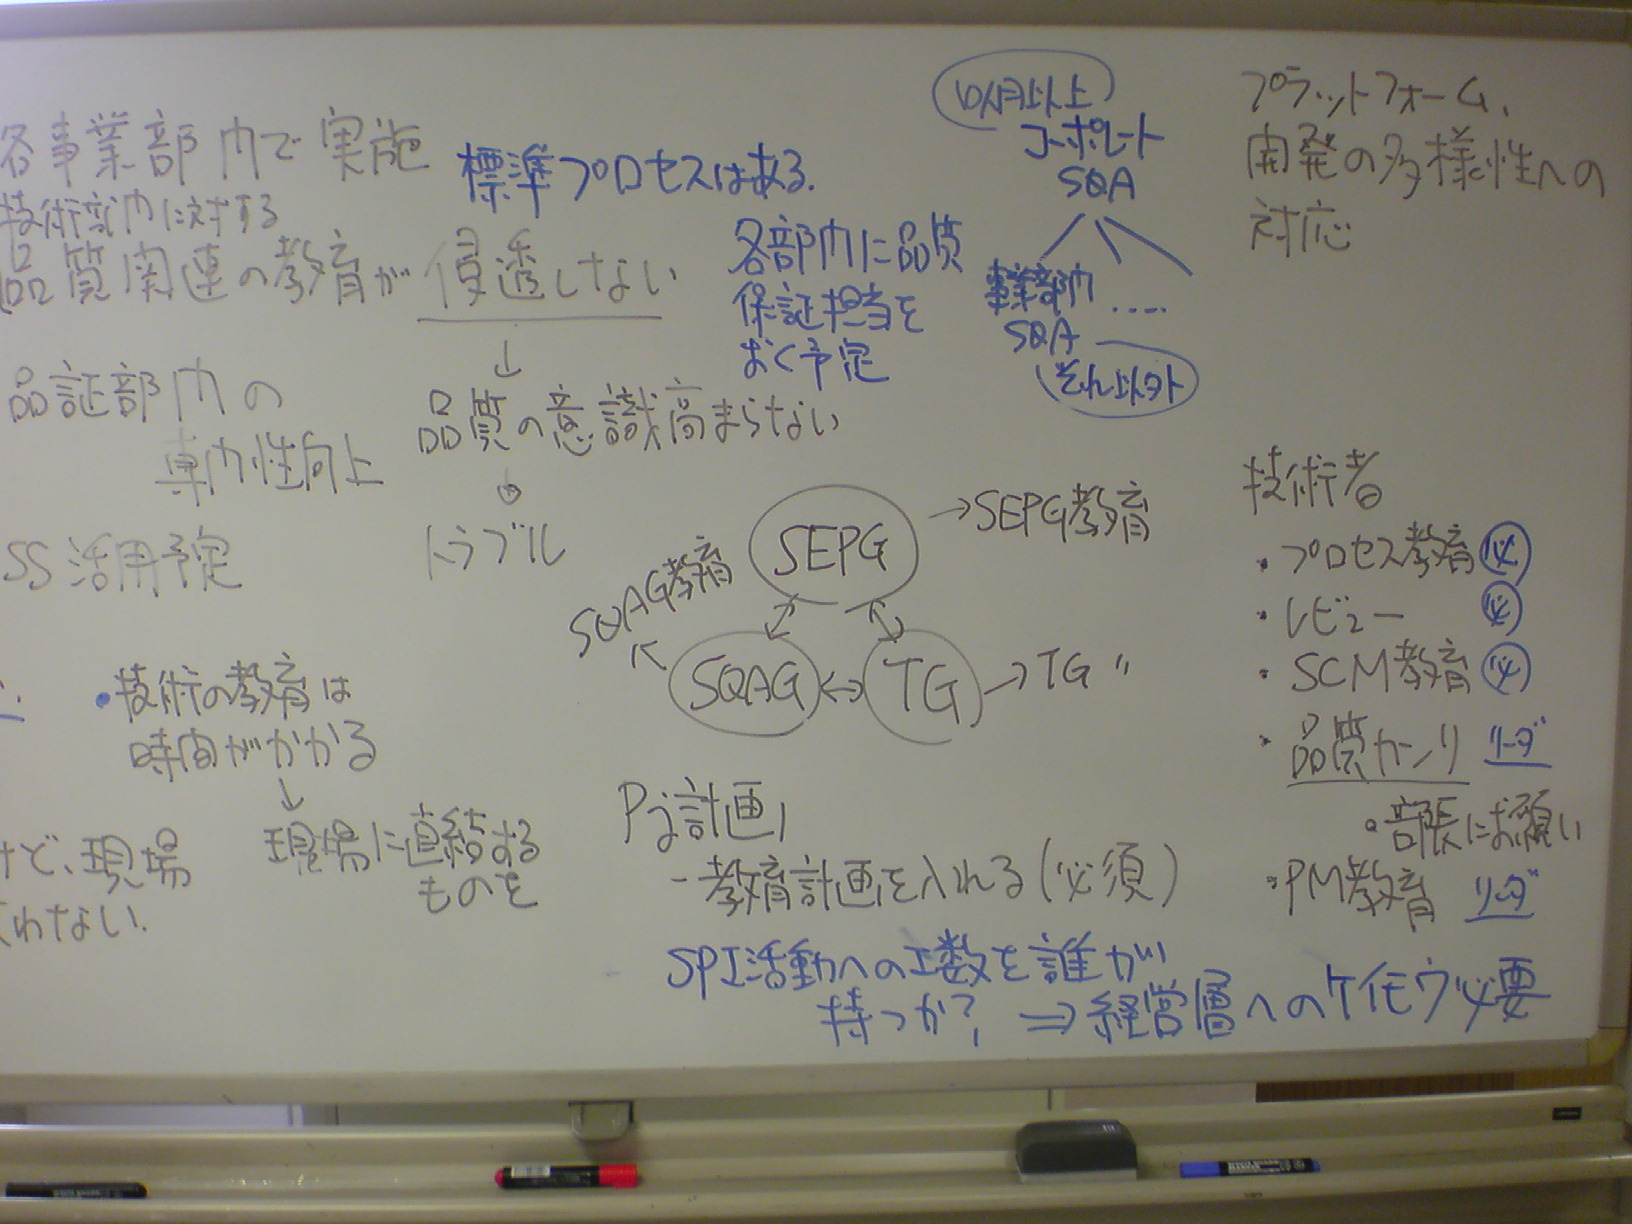 各事業部门で実施
技術部门に対する
品質関連の教育が浸透しない
↓
品質の意識高まらない
↓
トラブル
品証部门の
専门性向上
SS活用予定
・技術の教育は
時間がかかる
↓
現場に直結する
ものを
けど、現場
わない.
標準プロセスはある.
各部门に品質
保証担当を
おく予定
10人月以上
コーポレート
SQA
事業部门 ‥‥
SQA
それ以外
プラットフォーム、
開発の多様性への
対応
SEPG
→SEPG教育
SQAG教育
SQAG
↔
TG
→TG 〃
Pj計画,
-教育計画を入れる(必須)
技術者
・プロセス教育 必
・レビュー 必
・SCM教育 必
・品質カンリ リーダ
・部長にお願い
・PM教育 リーダ
SPI活動への工数を誰が
持つか? ⇒経営層へのケイモウ必要